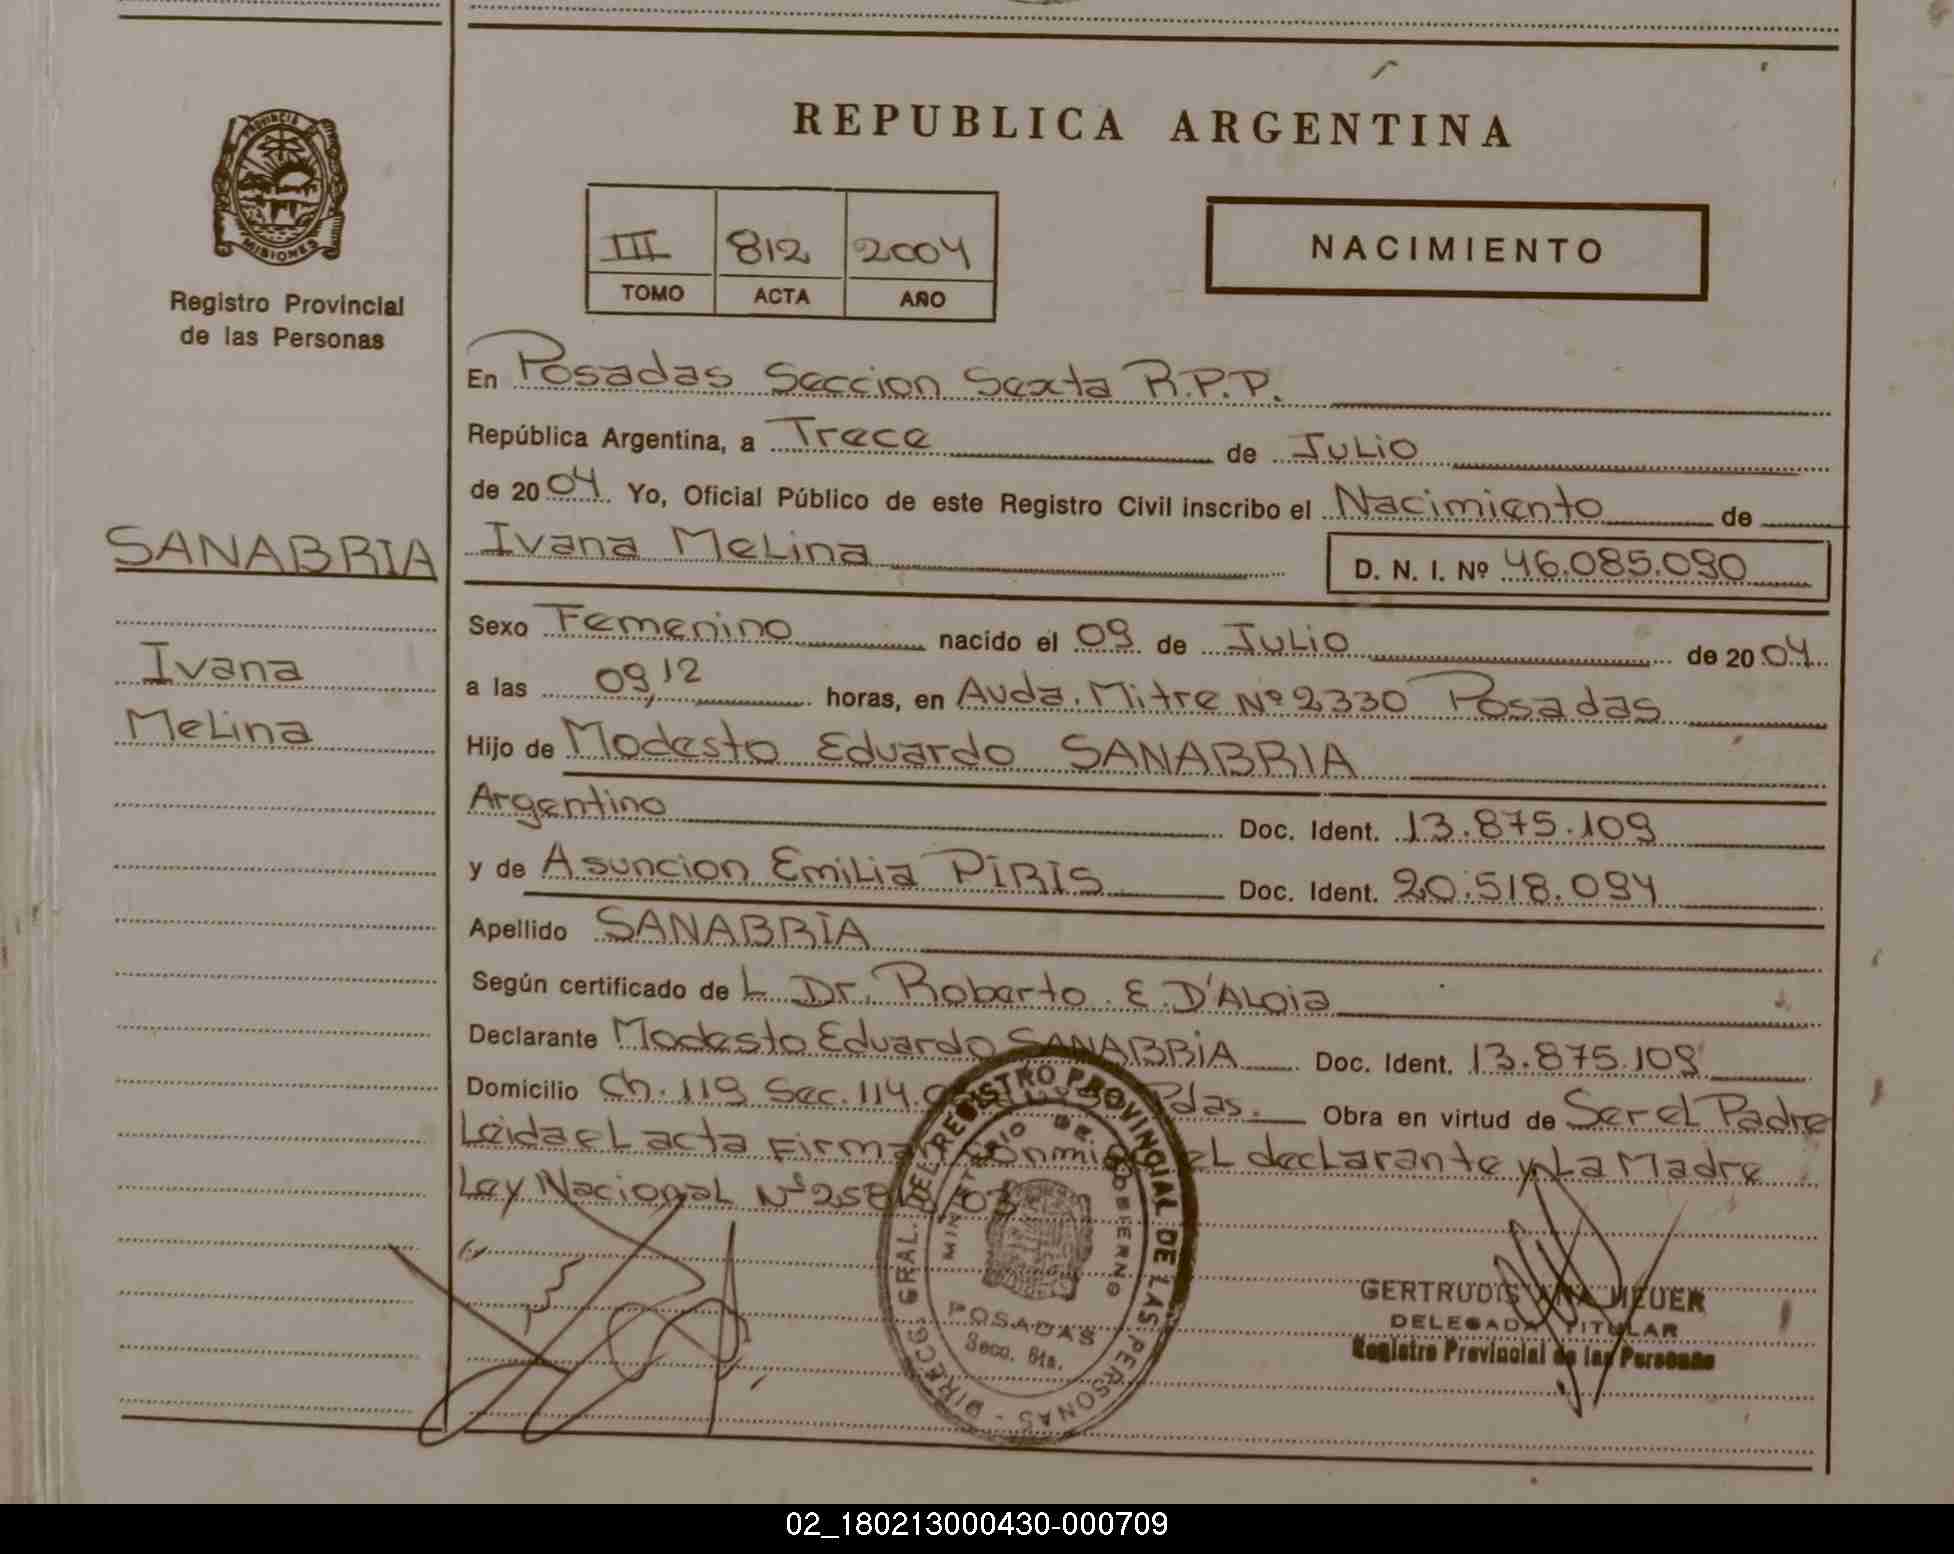 REPUBLICA ARGENTINA
PROVINCIA DE
MISIONES
Registro Provincial
de las Personas
III 812 2004
TOMO ACTA AÑO
NACIMIENTO
En Posadas Seccion Sexta R.P.P.
República Argentina, a Trece de Julio
de 2004 Yo, Oficial Público de este Registro Civil inscribo el Nacimiento de
SANABRIA
Ivana Melina D. N. I. Nº 46.085.090
Sexo Femenino nacido el 09 de Julio de 2004
Ivana
a las 09,12 horas, en Avda. Mitre Nº 2330 Posadas
Melina
Hijo de Modesto Eduardo SANABRIA
Argentino Doc. Ident. 13.875.109
y de Asuncion Emilia PIRIS Doc. Ident. 20.518.094
Apellido SANABRIA
Según certificado de L Dr. Roberto E D'ALoia
Declarante Modesto Eduardo SANABRIA Doc. Ident. 13.875.109
Domicilio Ch. 119 Sec. 114. Pdas. Obra en virtud de Ser el Padre
Leida el acta Firman conmigo el declarante y La Madre
Ley Nacional Nº
DIRECC. GRAL. DEL REGISTRO PROVINCIAL DE LAS PERSONAS -
MINISTERIO DE GOBIERNO
POSADAS
Secc. 6ta.
GERTRUDIS MEUER
DELEGADA TITULAR
Registro Provincial de las Personas
02_180213000430-000709